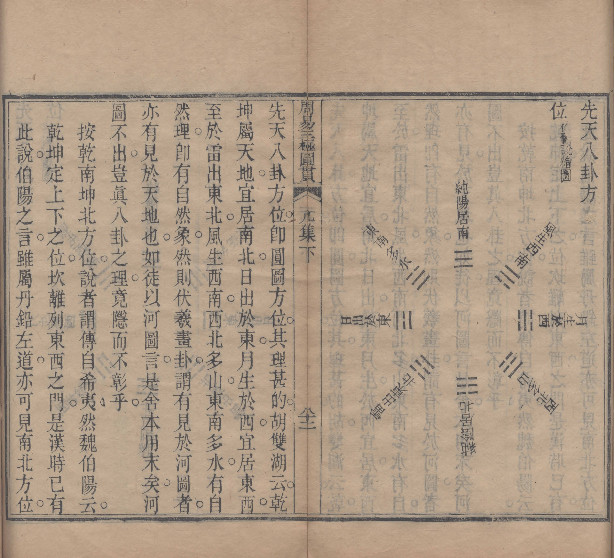 先天八卦方
位
純陽居南
風生西南
月生於西
西北多山
純陰居北
雷出東北
日出於東
東南多水
周易三極圖貫
元集下
先天八卦方位即圓圖方位其理甚的胡雙湖云乾
坤屬天地宜居南北日出於東月生於西宜居東西
至於雷出東北風生西南西北多山東南多水有自
然理即有自然象然則伏羲畫卦謂有見於河圖者
亦有見於天地也如徒以河圖言是舍本用末矣河
圖不出豈眞八卦之理竟隱而不彰乎
按乾南坤北方位說者謂傳自希夷然魏伯陽云
乾坤定上下之位坎離列東西之門是漢時已有
此說伯陽之言雖屬丹鉛左道亦可見南北方位